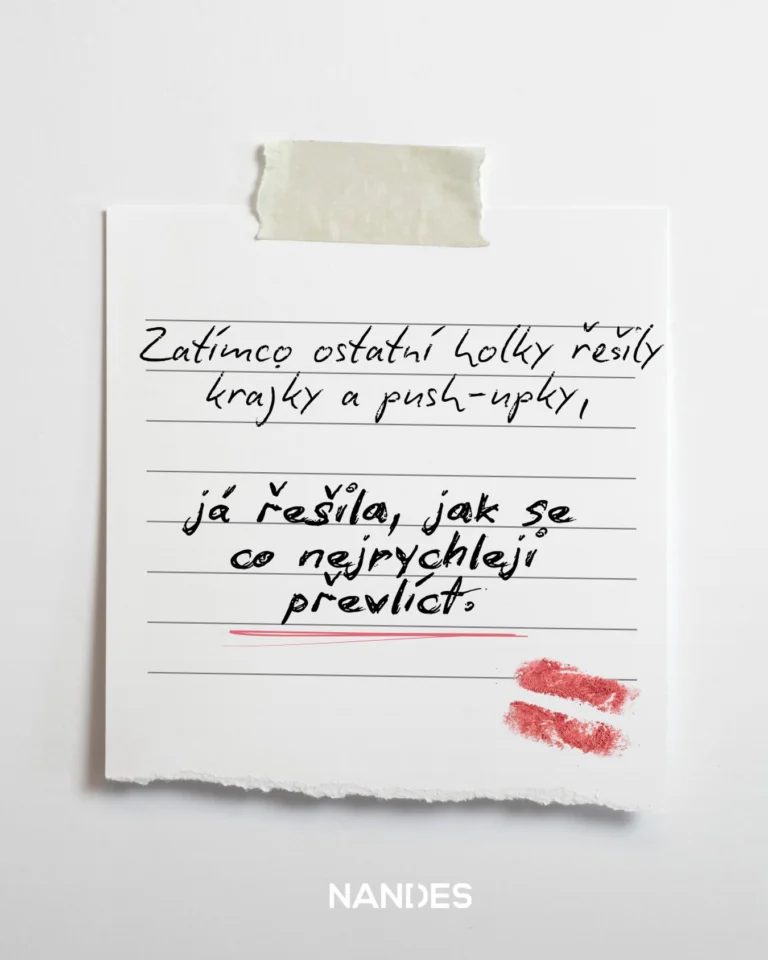 Zatímco ostatní holky řešily
krajky a push-upky,
já řešila, jak se
co nejrychleji
převlíct.
NANDES